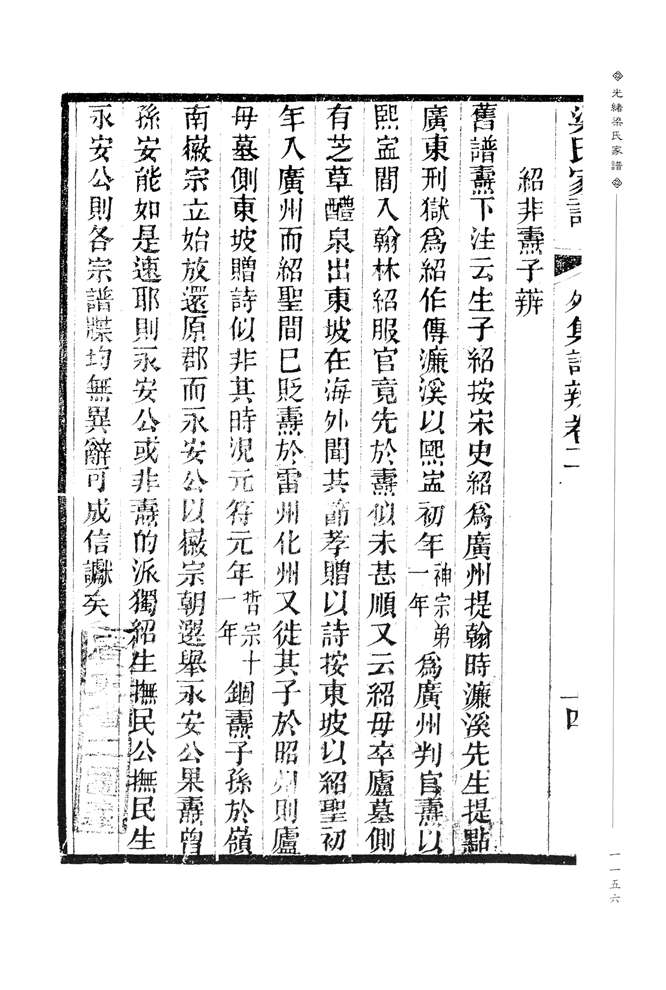 光緒梁氏家譜
一一五六
梁氏家譜 外集語辨卷二 一四
紹非燾子辨
舊譜燾下注云生子紹按宋史紹爲廣州提翰時濂溪先生提點
廣東刑獄爲紹作傳濂溪以熙寍初年神宗弟一年爲廣州判官燾以
熙寍間入翰林紹服官竟先於燾似未甚順又云紹毋卒廬墓側
有芝草醴泉出東坡在海外聞其誦孝贈以詩按東坡以紹聖初
年入廣州而紹聖間巳貶燾於雷州化州又徙其子於昭州則廬
毋墓側東坡贈詩似非其時況元符元年哲宗十一年錮燾子孫於嶺
南徽宗立始放還原郡而永安公以徽宗朝選舉永安公果燾曾
孫安能如是速耶則永安公或非燾的派獨紹生撫民公撫民生
永安公則各宗譜牒均無異辭可成信讞矣